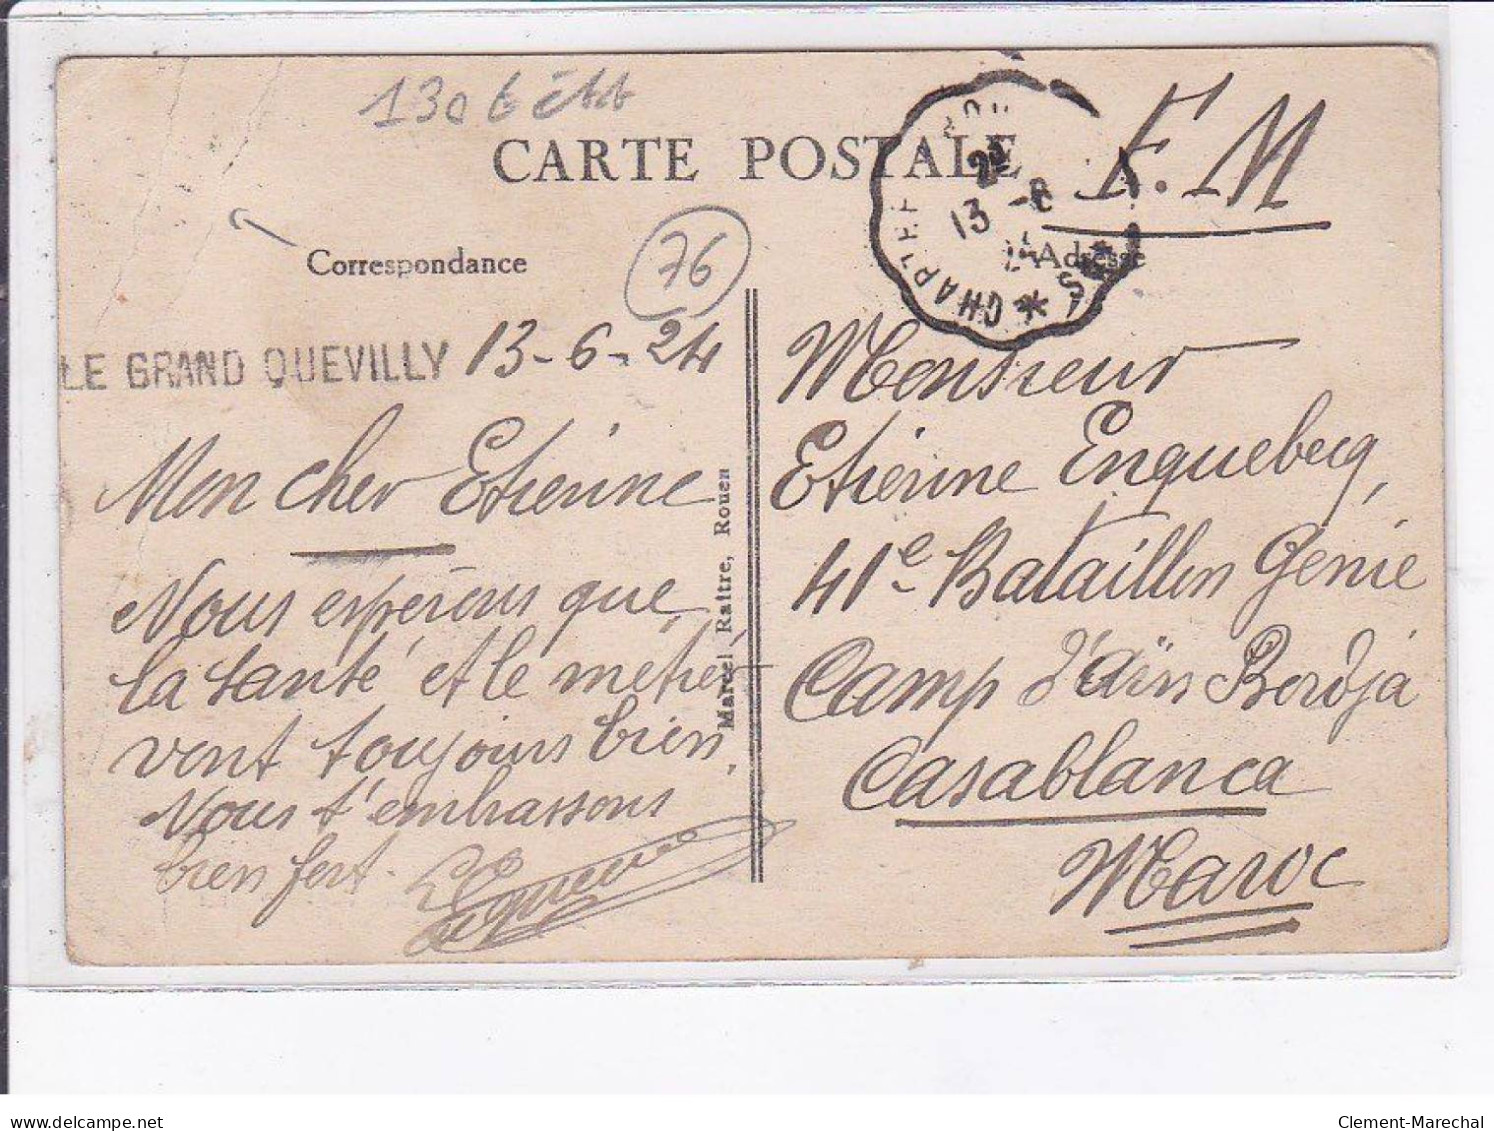 130 t été
CARTE POSTALE
F.M
Correspondance
76
Adresse
CHARTRES A ROU
2°
13 -6
24
LE GRAND QUEVILLY 13-6-24
Mon cher Etienne
Nous espérons que
la santé et le métier
vont toujours bien.
Nous t'embrassons
bien fort.
Marcel Raître, Rouen
Monsieur
Etienne Enquebecq,
41e Bataillon Génie
Camp d'aïn Bordja
Casablanca
Maroc
delcampe.net
Clement-Marechal